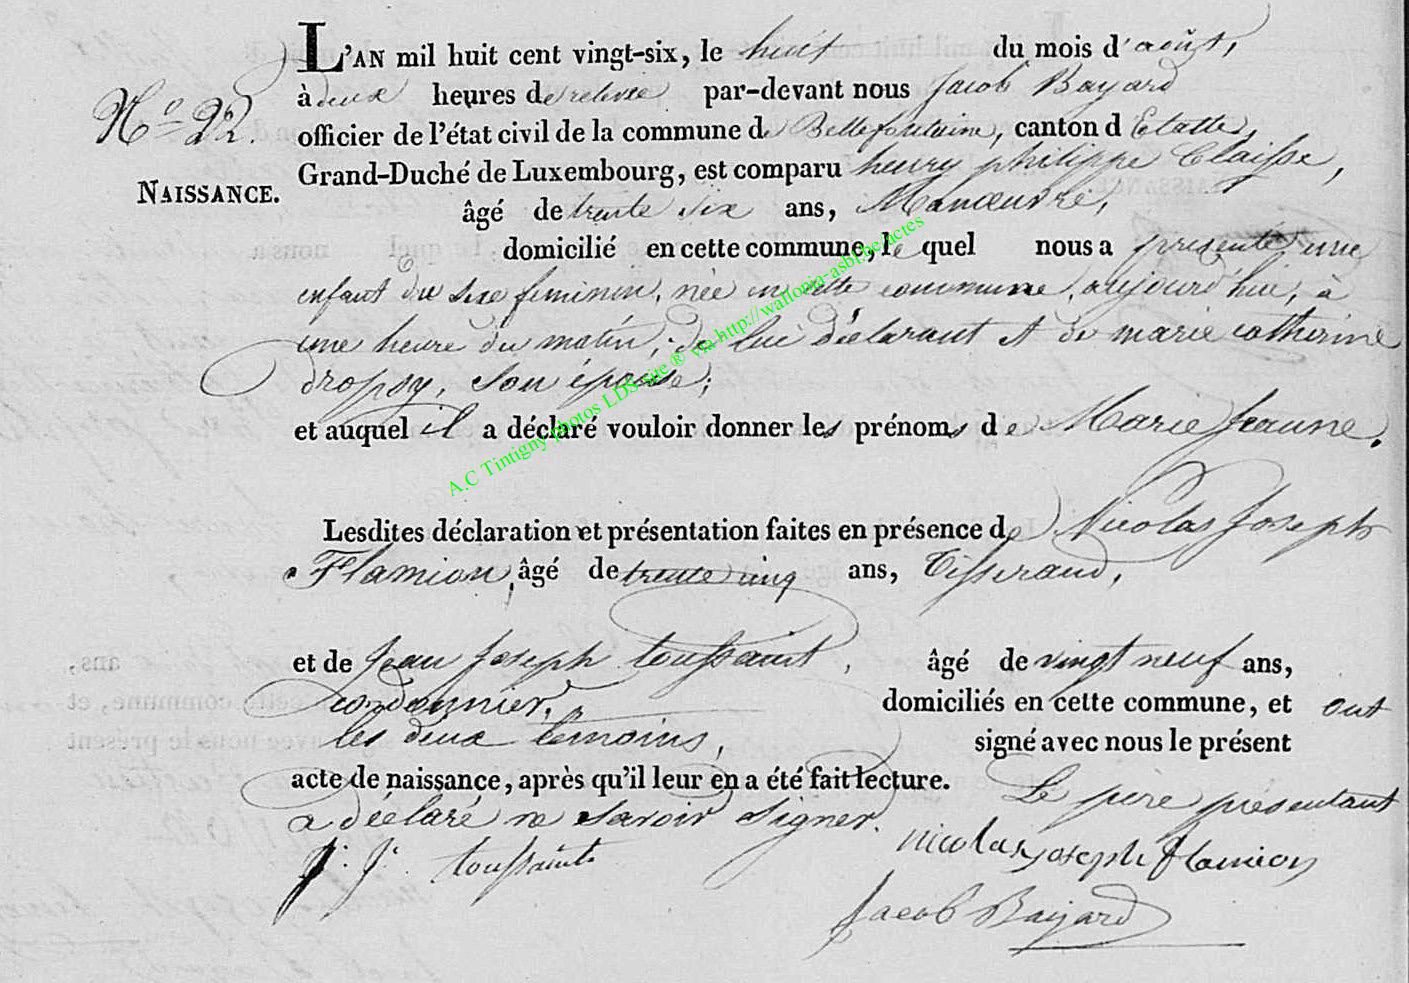 L'AN mil huit cent vingt-six, le huit du mois d'août,
à deux heures de relevée par-devant nous Jacob Bayard
N.o 22.
officier de l'état civil de la commune de Bellefontaine, canton d'Etalle,
NAISSANCE.
Grand-Duché de Luxembourg, est comparu henry philippe Claisse,
âgé de trente six ans, Manœuvre,
domicilié en cette commune, le quel nous a présenté une
enfant du sexe feminin, née en cette commune, aujourd'hui, à
une heure du matin, de lui déclarant et de marie catherine
dropsy, son épouse;
et auquel il a déclaré vouloir donner les prénoms de Marie Jeanne.
Lesdites déclaration et présentation faites en présence de Nicolas Joseph
Flamion, âgé de trente cinq ans, Tisserand,
et de Jean Joseph toussaint, âgé de vingt neuf ans,
cordonnier, domiciliés en cette commune, et ont
les deux témoins, signé avec nous le présent
acte de naissance, après qu'il leur en a été fait lecture. Le père présentant
a déclaré ne savoir signer.
J. J. toussaint nicolas joseph flamion
Jacob Bayard
A.C Tintigny photos LDS site ® via http://wallonia-asbl.be/actes